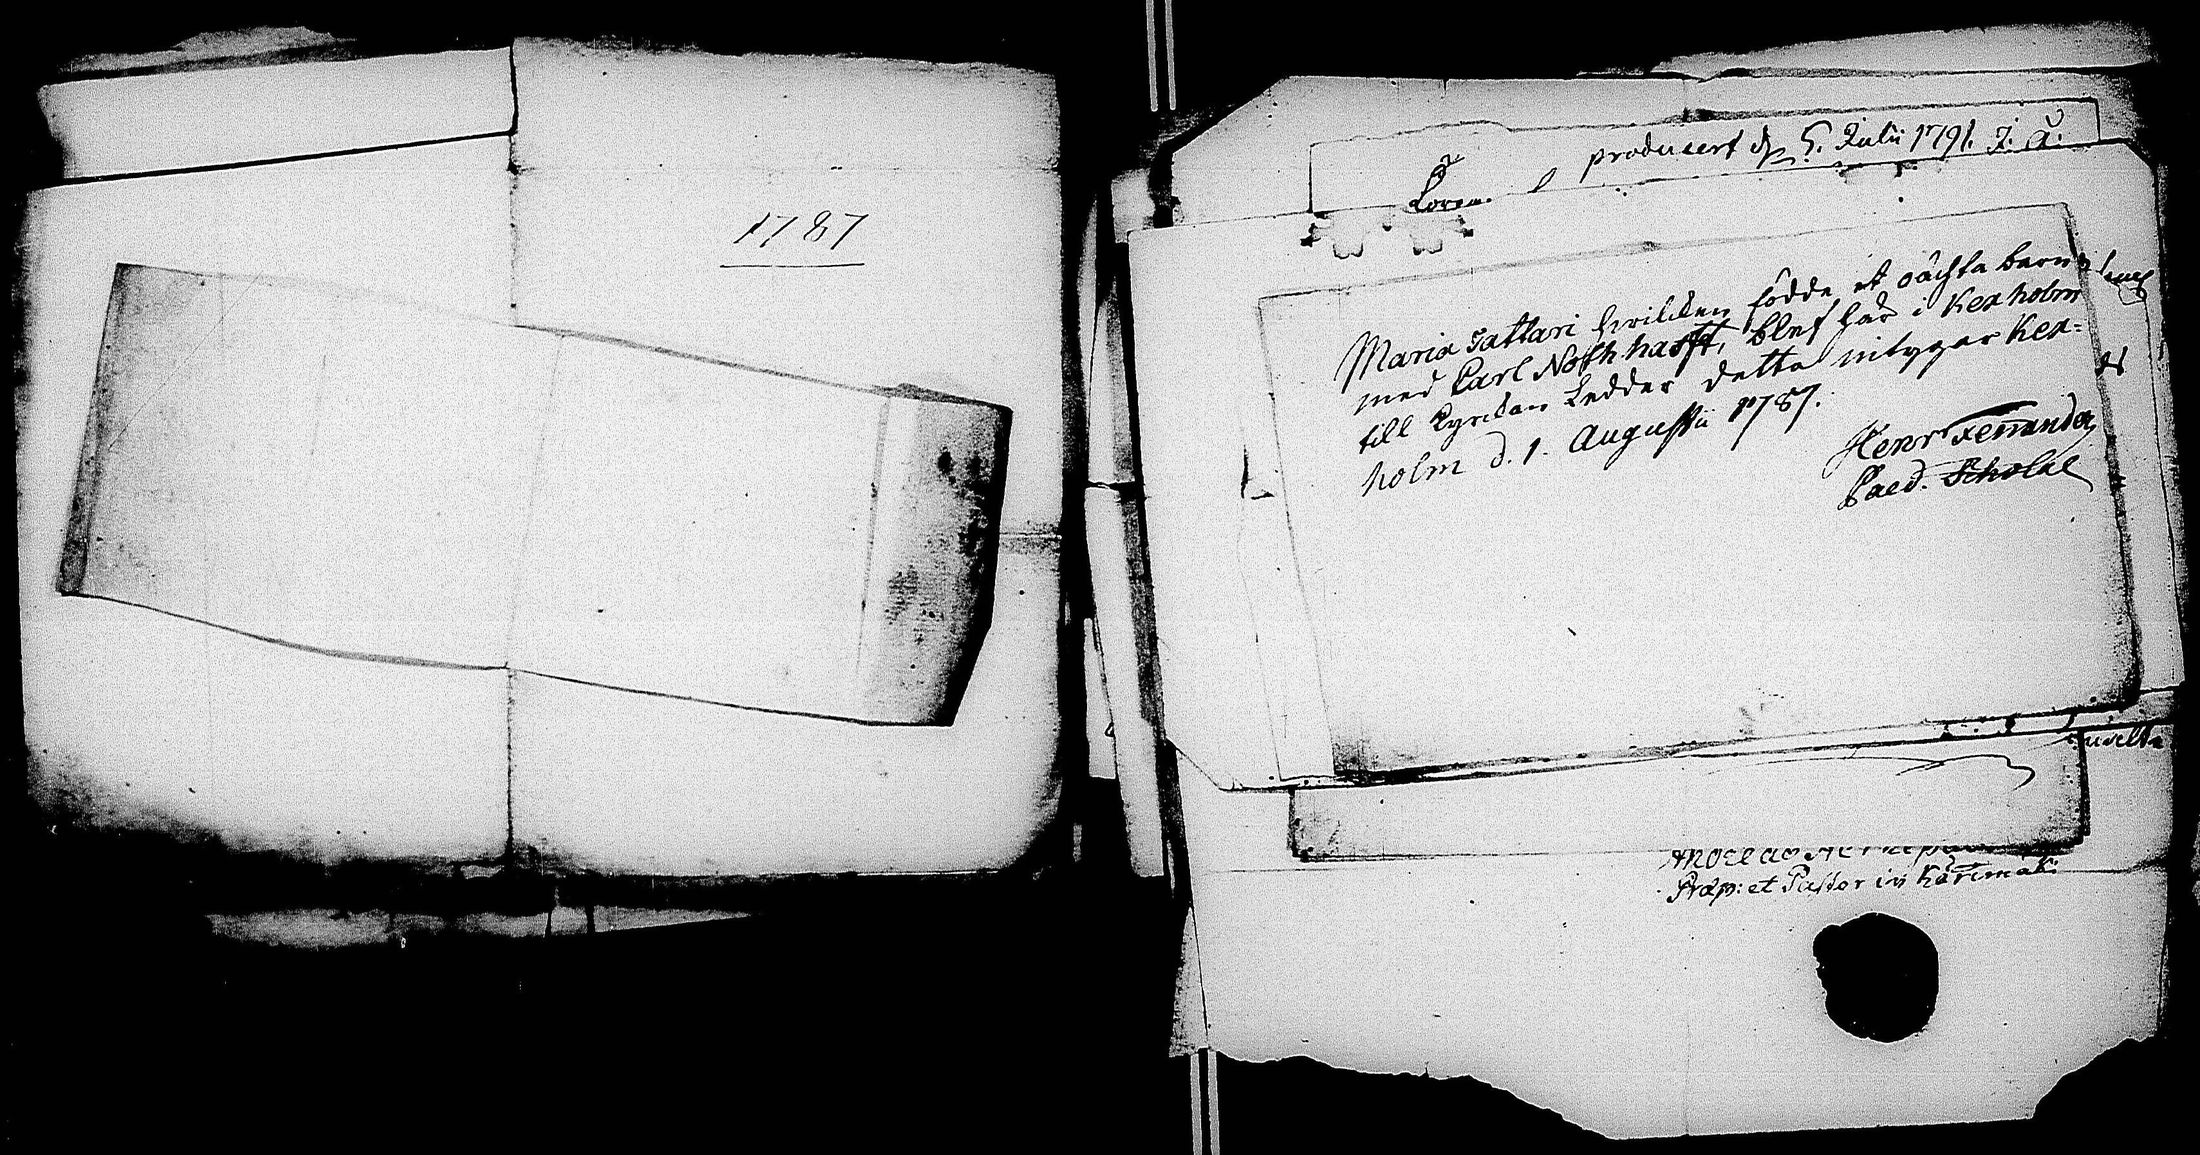 1787
producert d. 5. Julii 1791. J. A.
Maria Tattari hvilken födde et oächta barn
med Carl Nothhafft, blef här i Kexholm
till Kyrckan Ledder detta intygar Kex=
holm d. 1. Augustii 1787.
Henr
Paed. Scholae
Præp: et Pastor in Kärimäki